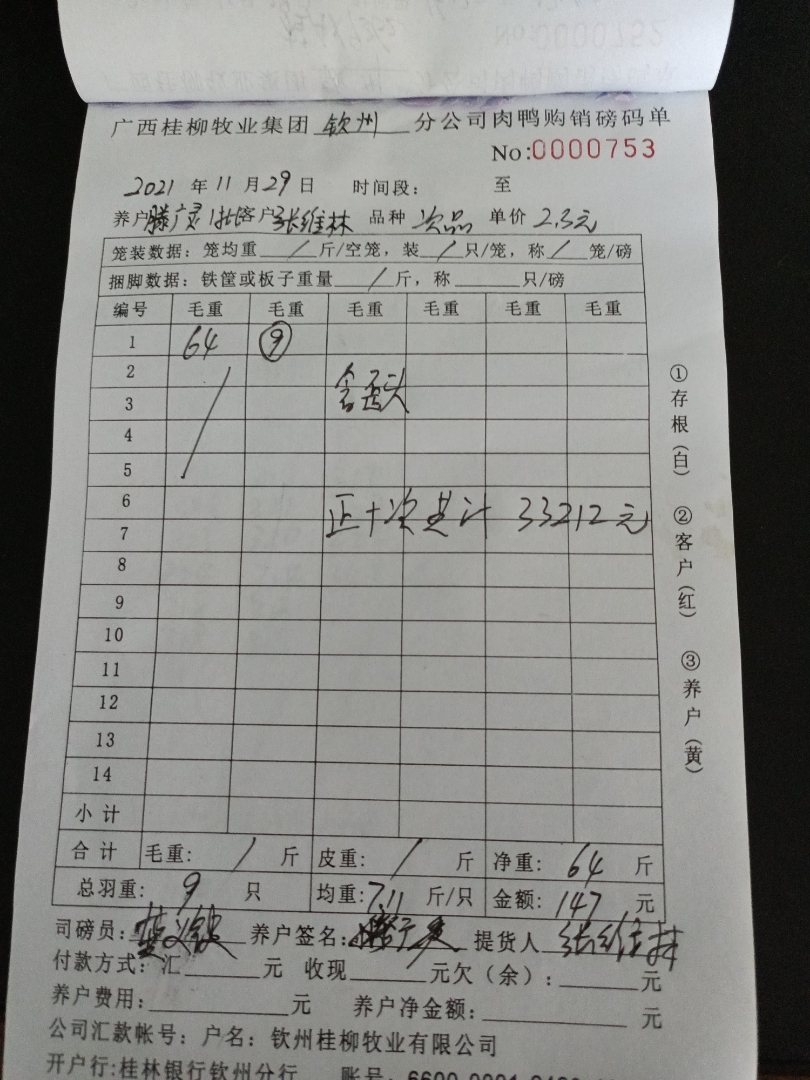 广西桂柳牧业集团 钦州 分公司肉鸭购销磅码单
No:0000753
2021 年 11 月 29 日 时间段: 至
养户 滕广灵1批 客户 张维林 品种 次品 单价 2.3元
笼装数据: 笼均重 / 斤/空笼, 装 / 只/笼, 称 / 笼/磅
捆脚数据: 铁筐或板子重量 / 斤, 称 只/磅
编号 毛重 毛重 毛重 毛重 毛重 毛重
1 64 9
2
3 含歪头
4
5
6
正+次共计 33212元
7
8
9
10
11
12
13
14
小计
合计 毛重: / 斤 皮重: / 斤 净重: 64 斤
总羽重: 9 只 均重: 7.11 斤/只 金额: 147 元
司磅员: 养户签名: 提货人 张维林
付款方式: 汇 元 收现 元欠(余): 元
养户费用: 元 养户净金额: 元
公司汇款帐号: 户名: 钦州桂柳牧业有限公司
开户行:桂林银行钦州分行 账号:
①存根(白)
②客户(红)
③养户(黄)